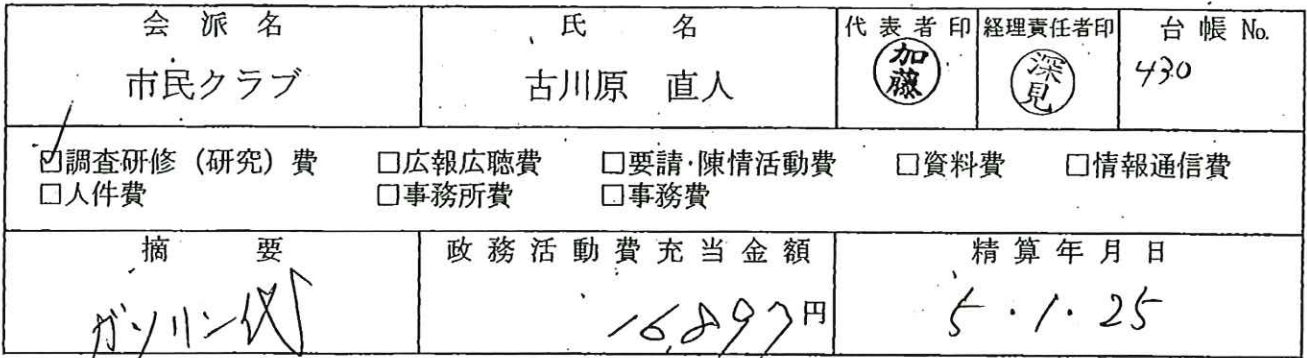 会派名 氏名 代表者印 経理責任者印 台帳 No.
市民クラブ 古川原 直人 加藤 深見 430
☑調査研修（研究）費 □広報広聴費 □要請・陳情活動費 □資料費 □情報通信費
□人件費 □事務所費 □事務費
摘要 政務活動費充当金額 精算年月日
ガソリン代 16,897円 5・1・25